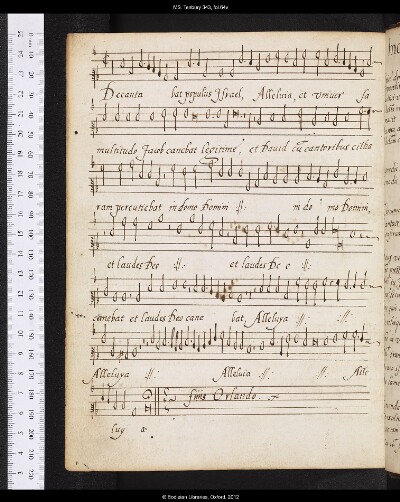 MS. Tenbury 343, fol.54v
Decanta bat populus Ysrael, Alleluia, et vniuer sa
multitudo Jacob canebat legitime, et Dauid cū cantoribus citha
ram percutiebat in domo Domini :||: in do mo Domini,
et laudes Deo :||: et laudes De o :||:
canebat et laudes Deo cane bat, Alleluya :||: :||:
Alleluya :||: Alleluia :||: :||: Alle
finis Orlando.
luy a
© Bodleian Libraries, Oxford, 2012